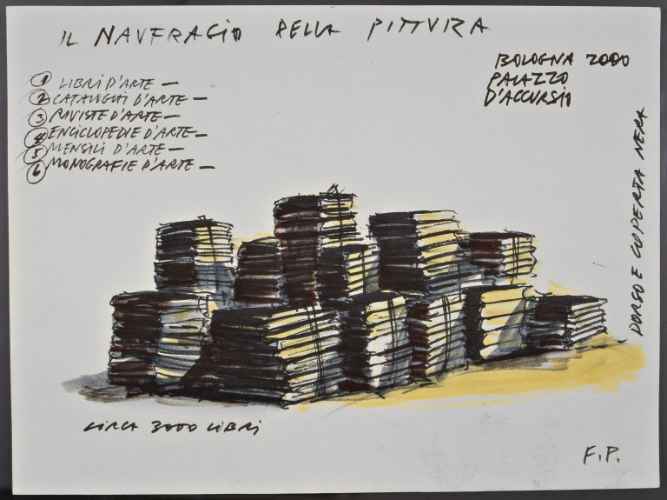 IL NAUFRAGIO DELLA PITTURA
BOLOGNA 2000
PALAZZO
D'ACCURSIO
1 LIBRI D'ARTE —
2 CATALOGHI D'ARTE —
3 RIVISTE D'ARTE —
4 ENCICLOPEDIE D'ARTE —
5 MENSILI D'ARTE —
6 MONOGRAFIE D'ARTE —
DORSO E COPERTA NERA
CIRCA 3000 LIBRI
F.P.